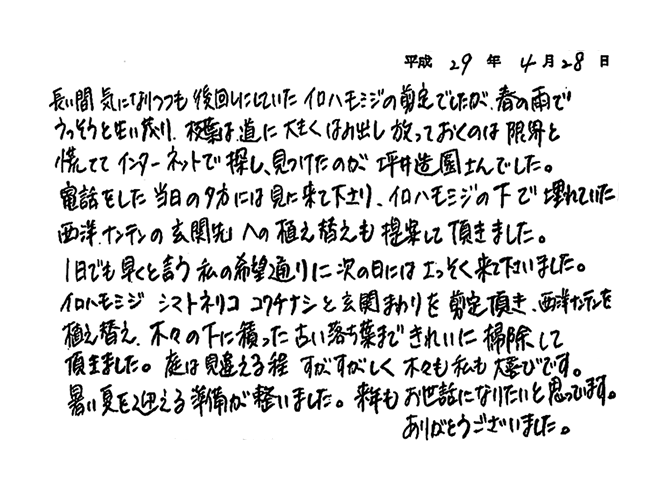 平成 29 年 4 月 28 日
長い間 気になりつつも 後回しにしていた イロハモミジの剪定でしたが、春の雨で
うっそうと生い茂り、枝葉は道に大きくはみ出し 放っておくのは 限界と
慌てて インターネットで 探し、見つけたのが 坪井造園さんでした。
電話をした 当日の夕方には 見に来て下さり、イロハモミジの下で 埋れていた
西洋ナンテンの 玄関先への 植え替えも 提案して 頂きました。
1日でも早くと言う 私の希望通りに 次の日には さっそく来て下さいました。
イロハモミジ シマトネリコ コクチナシと 玄関まわりを 剪定頂き、西洋ナンテンを
植え替え、木々の下に積った 古い落ち葉まで きれいに 掃除して
頂きました。庭は見違える程 すがすがしく 木々も私も 大喜びです。
暑い夏を迎える 準備が 整いました。来年も お世話になりたいと 思っています。
ありがとうございました。